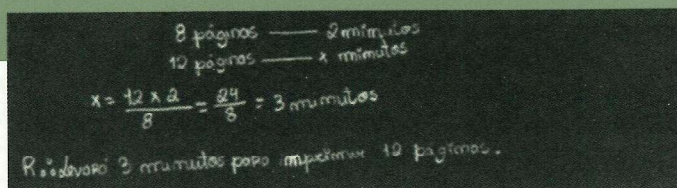 8 páginas —— 2 minutos
12 páginas —— x minutos
x = 12 x 2 / 8 = 24 / 8 = 3 minutos
R.: Levará 3 minutos para imprimir 12 páginas.